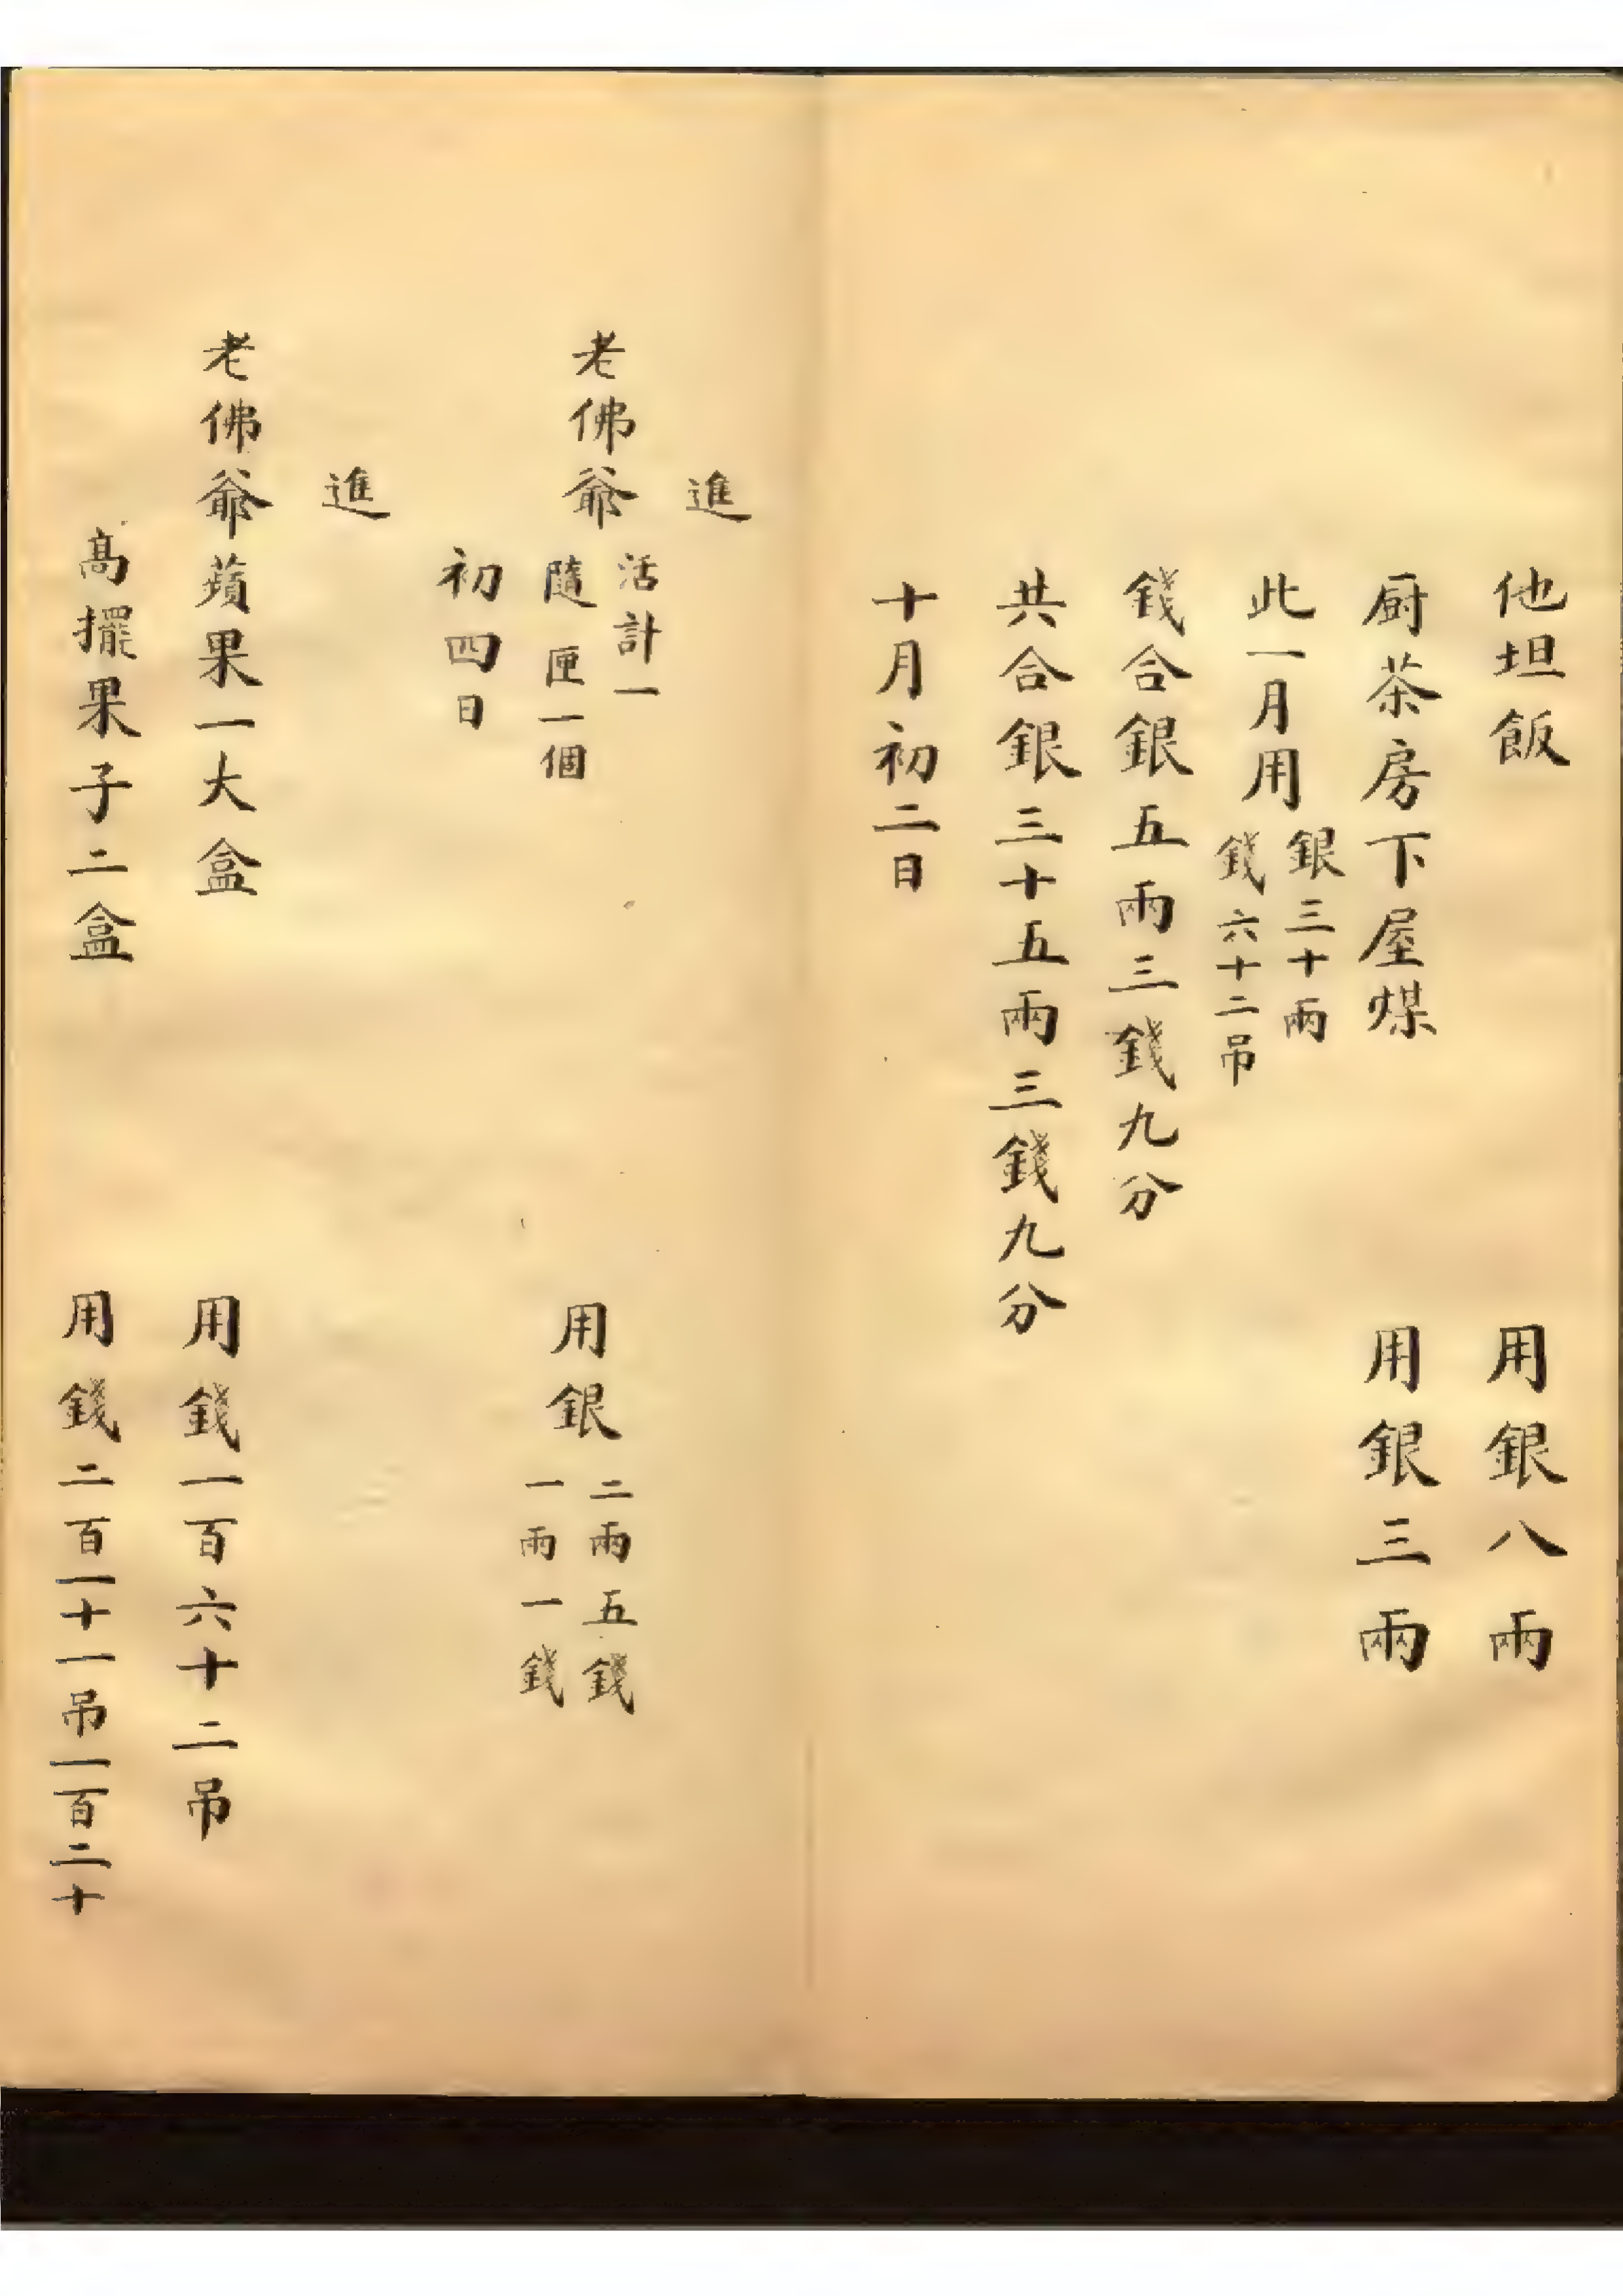 他坦飯 用銀八兩
厨茶房下屋煤 用銀三兩
此一月用 銀三十兩 錢六十二吊
錢合銀五兩三錢九分
共合銀三十五兩三錢九分
十月初二日
進
老佛爺 活計一 隨匣一個 用銀 二兩五錢 一兩一錢
初四日
進
老佛爺蘋果一大盒 用錢一百六十二吊
高擺果子二盒 用錢二百一十一吊一百二十